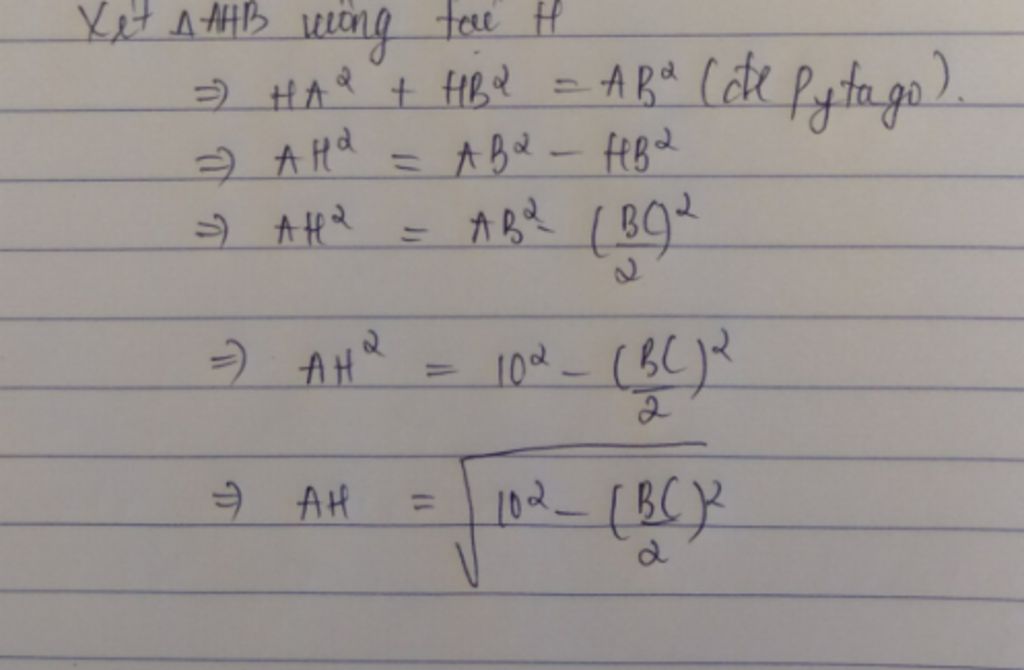 Xét ΔAHB vuông tại H
⇒ HA² + HB² = AB² (đl Pytago).
⇒ AH² = AB² - HB²
⇒ AH² = AB² - (BC/2)²
⇒ AH² = 10² - (BC/2)²
⇒ AH = √(10² - (BC/2)²)